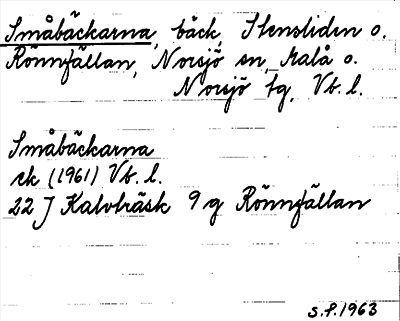 Småbäckarna, bäck, Stensliden o.
Rönnfällan, Norsjö sn, Malå o.
Norsjö tg, Vb. l.
Småbäckarna
ek (1961) Vb. l.
22 J Kalvträsk 9 g Rönnfällan
S.f. 1963